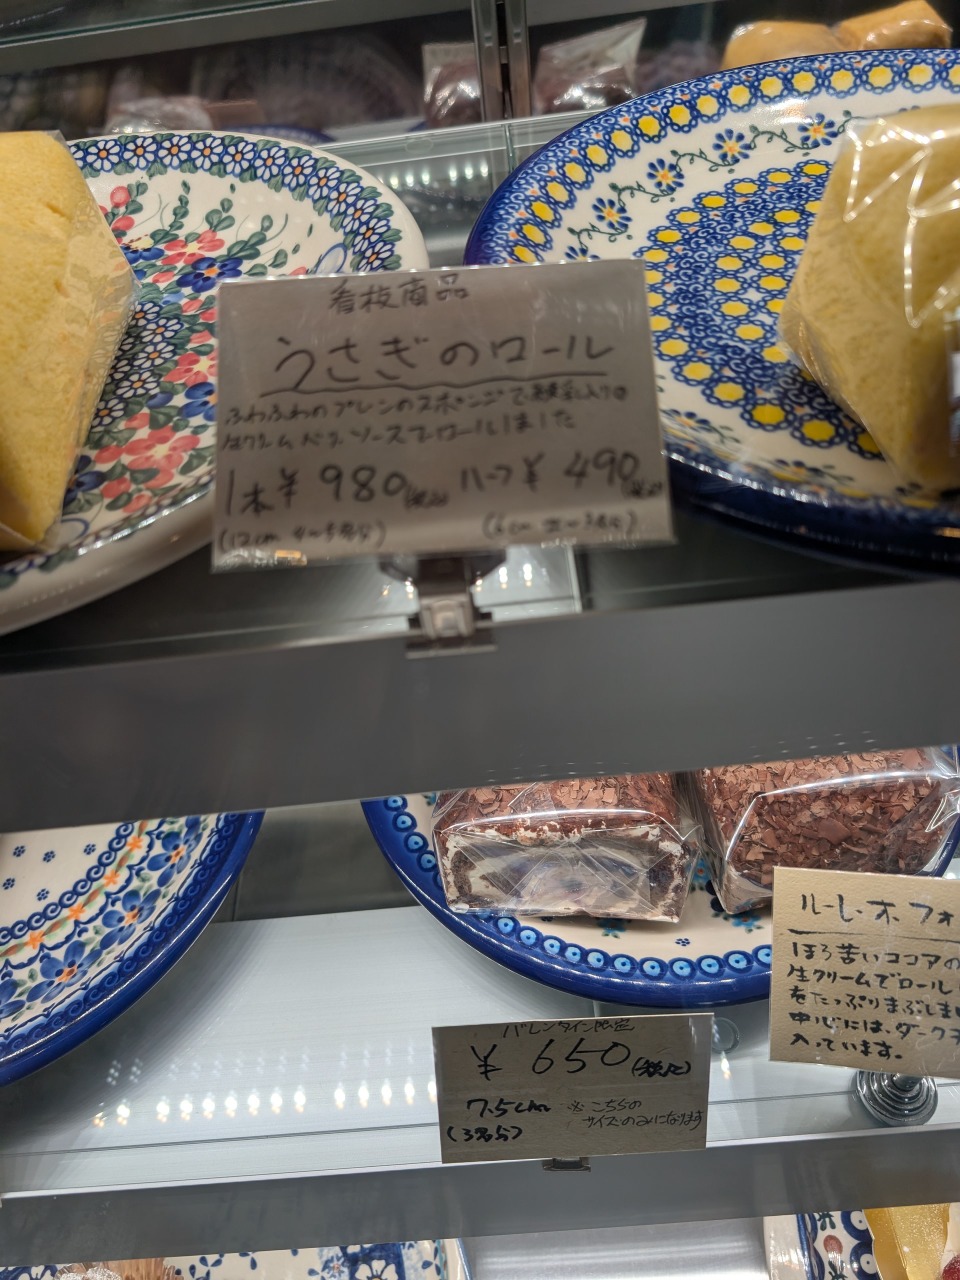 看板商品
うさぎのロール
ふわふわのプレーンのスポンジで練乳入りの
生クリームとソースでロールしました
1本¥980(税込) ハーフ¥490(税込)
(12cm
(6cm
ルーレ・ホ フォ
ほろ苦いココアの
生クリームでロール
をたっぷりまぶしま
中心には、ダークチ
入っています。
バレンタイン限定
¥650(税込)
7.5cm ※こちらの
サイズのみになります
(3名分)